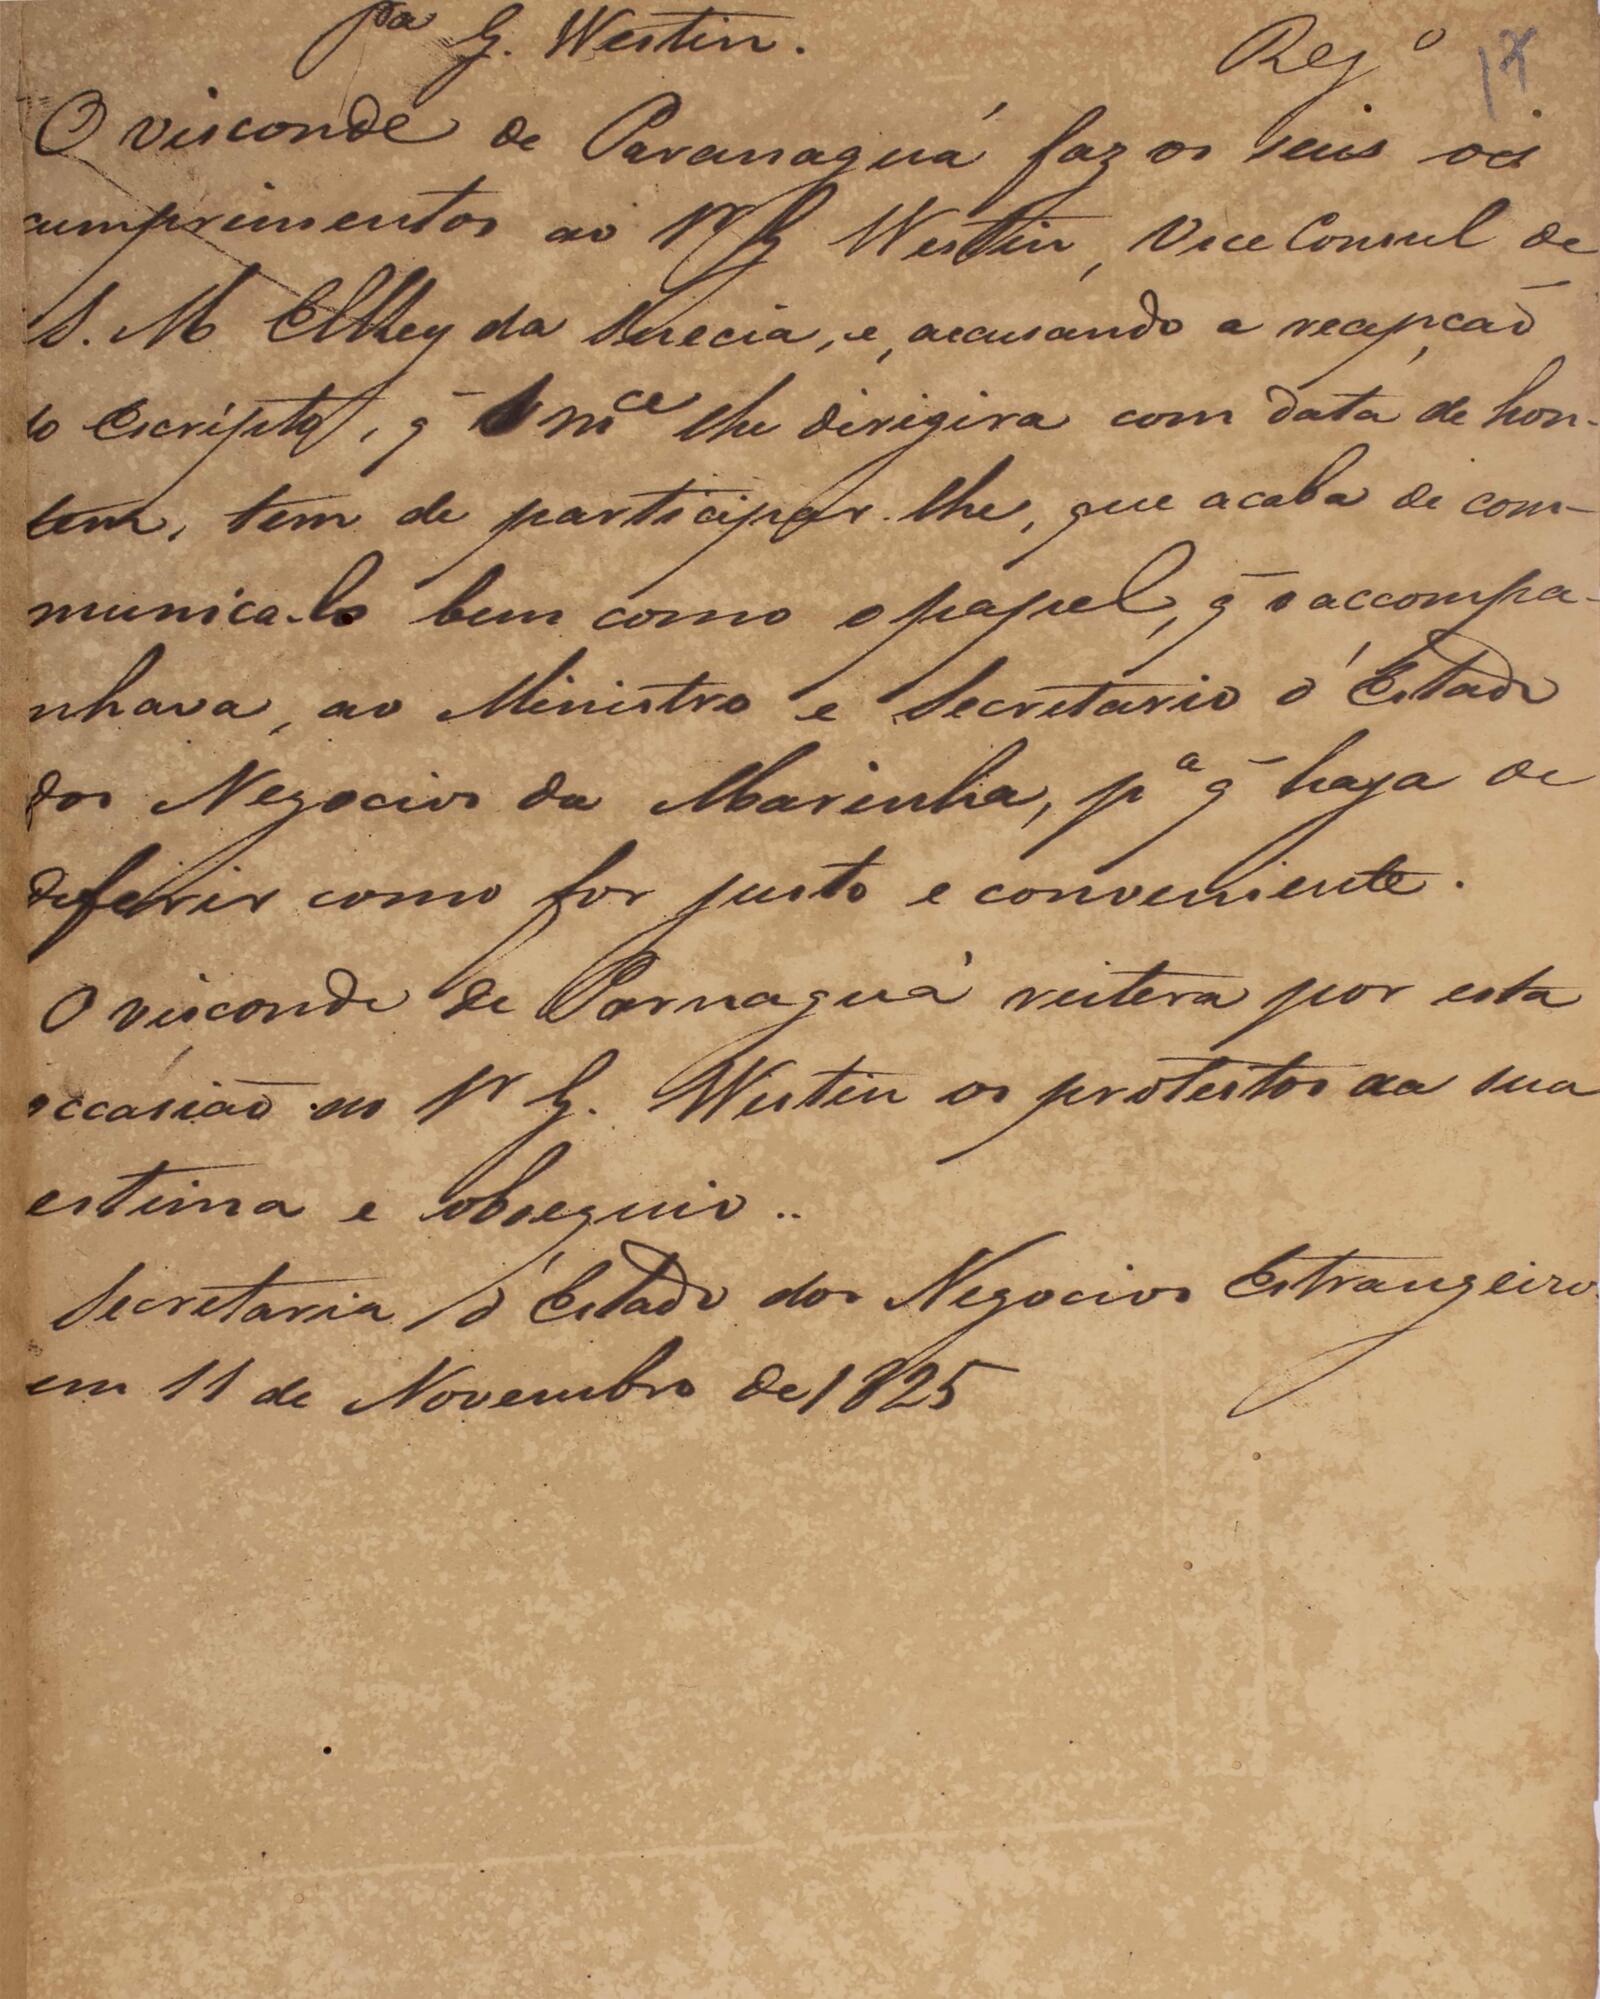 pa G. Westin.
Reg.o 17
O visconde de Paranaguá faz os seus
cumprimentos ao Sr G Westin, Vice Consul de
S. M ElRey da Suecia, e, accusando a recepção
do Escripto, q̄ Smce lhe dirigira com data de hon-
tem, tem de participar-lhe, que acaba de com-
munica-lo bem como o papel, q̄ o accompa-
nhava, ao Ministro e Secretario d'Estado
dos Negocios da Marinha, pa q̄ haja de
deferir como for justo e conveniente.
O visconde de Parnaguá reitera por esta
occasião ao Sr G. Westin os protestos da sua
estima e obsequio..
Secretaria d'Estado dos Negocios Estrangeiros
em 11 de Novembro de 1825